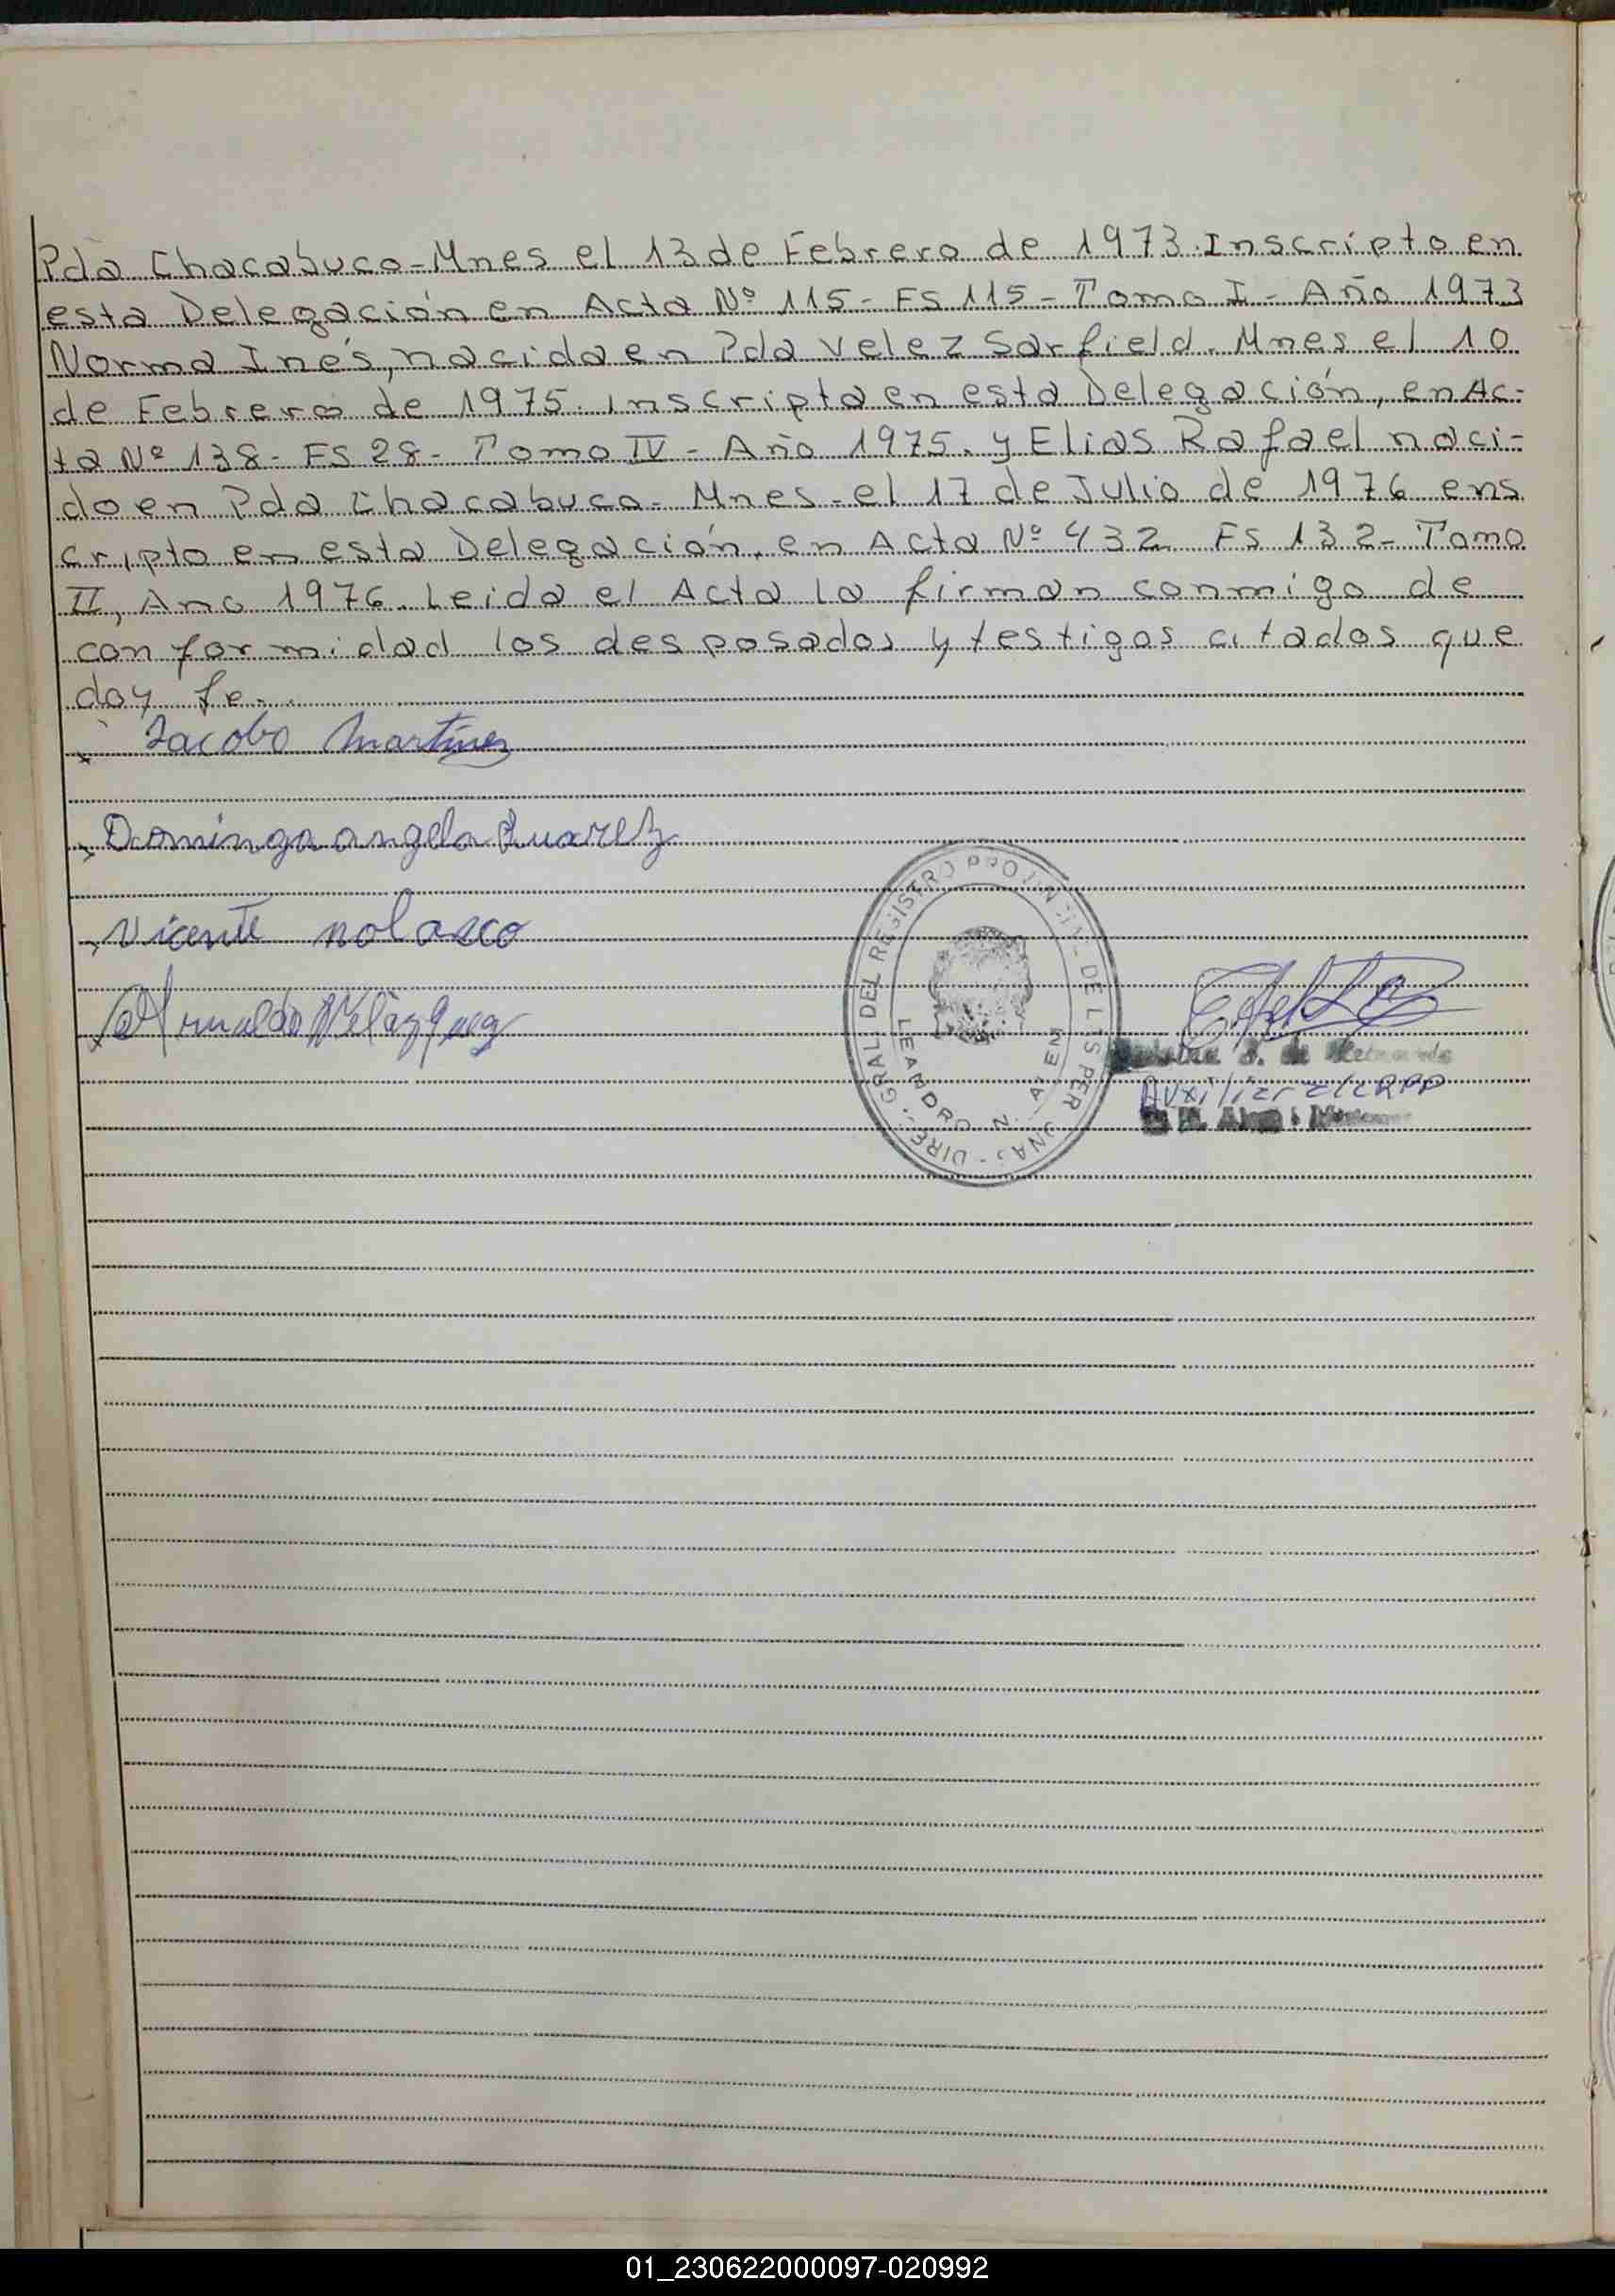 Pda Chacabuco-Mnes el 13 de Febrero de 1973. Inscripto en
esta Delegación en Acta Nº 115- FS 115- Tomo I - Año 1973
Norma Inés, nacida en Pda Velez Sarfield. Mnes el 10
de Febrero de 1975. inscripta en esta Delegación, en Ac-
ta Nº 138- FS 28- Tomo IV - Año 1975. y Elias Rafael naci-
do en Pda Chacabuco- Mnes- el 17 de Julio de 1976 ens
cripto en esta Delegación, en Acta Nº 432 FS 132- Tomo
II, Ano 1976. Leida el Acta la firman conmigo de
conformidad los desposados y testigos citados que
doy fe.
Jacobo Martinez
Dominga angela Suarez
Vicente nolasco
Arnaldo Velázquez
DIREC. GRAL DEL REGISTRO PROVINCIAL DE LAS PERSONAS
LEANDRO N. ALEM
de
Auxiliar de RPP